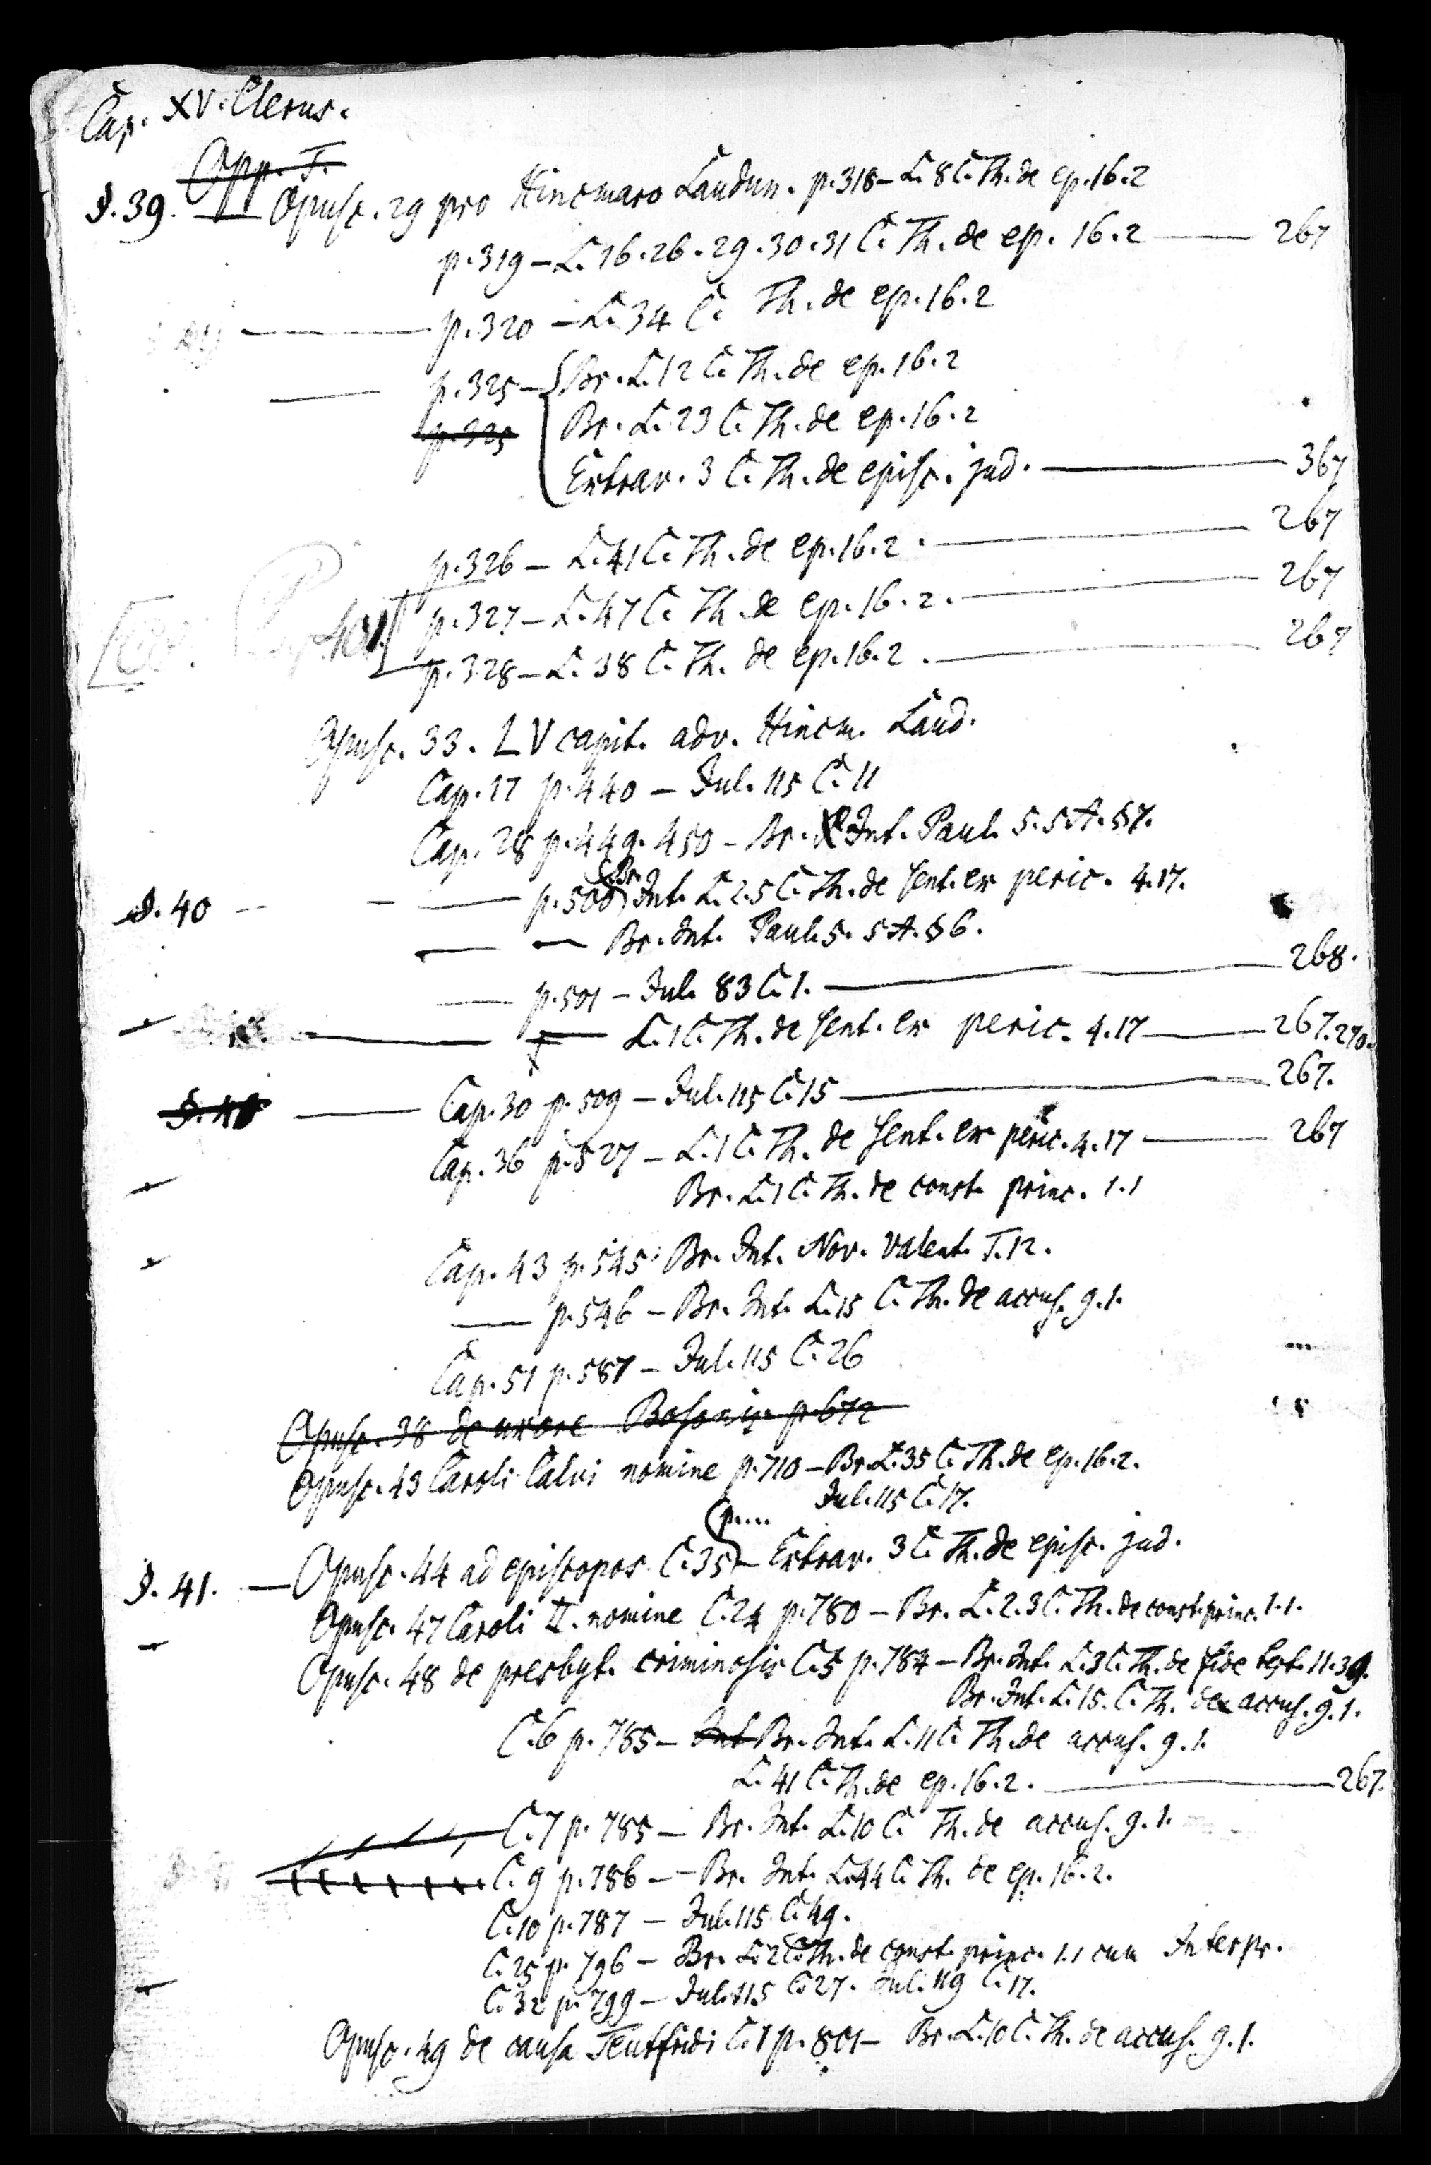 Cap. XV. Clerus.
Opp. T.
§. 39. — Opusc. 29 pro Hincmaro Laudun. p. 318 – L. 8 C. Th. de ep. 16. 2
p. 319 – L. 16. 26. 29. 30. 31 C. Th. de ep. 16. 2 — 267
— p. 320 – L. 34 C. Th. de ep. 16. 2
— p. 325 – { Br. L. 12 C. Th. de ep. 16. 2
p. 325 Br. L. 23 C. Th. de ep. 16. 2
Extrav. 3 C. Th. de episc. jud. — 367
p. 326 – L. 41 C. Th. de ep. 16. 2. — 267
p. 327 – L. 47 C. Th. de ep. 16. 2. — 267
p. 328 – L. 38 C. Th. de ep. 16. 2. — 267
Opusc. 33. LV capit. adv. Hincm. Laud.
Cap. 17 p. 440 – Jul. 115 C. 11
Cap. 28 p. 449. 450 – Br. Int. Paul. 5. 5 A. §7.
§. 40 — p. 500 Br. Int. L. 2. 5 C. Th. de sent. ex peric. 4. 17.
— — Br. Int. Paul. 5. 5 A. §6.
— p. 501 – Jul. 83 C. 1. — 268.
— — L. 1 C. Th. de sent. ex peric. 4. 17 — 267. 270.
§. 40 — Cap. 30 p. 509 – Jul. 115 C. 15 — 267.
Cap. 36 p. 527 – L. 1 C. Th. de sent. ex peric. 4. 17 — 267
Br. L. 1 C. Th. de const. princ. 1. 1
Cap. 43 p. 545 Br. Int. Nov. Valent. T. 12.
— p. 546 – Br. Int. L. 15 C. Th. de accus. 9. 1.
Cap. 51 p. 587 – Jul. 115 C. 26
Opusc. 38 de uxore Bosonis p. 672
Opusc. 43 Caroli Calvi nomine p. 710 – Br. L. 35 C. Th. de ep. 16. 2.
Jul. 115 C. 17.
(p....
§. 41. — Opusc. 44 ad episcopos C. 35 – Extrav. 3 C. Th. de episc. jud.
Opusc. 47 Caroli II. nomine C. 24 p. 780 – Br. L. 2. 3 C. Th. de const. princ. 1. 1.
Opusc. 48 de presbyt. criminosis C. 5 p. 784 – Br. Int. L. 3 C. Th. de fide test. 11. 39.
Br. Int. L. 15. C. Th. de accus. 9. 1.
C. 6 p. 785 – Int Br. Int. L. 11 C. Th. de accus. 9. 1.
L. 41 C. Th. de ep. 16. 2. — 267.
C. 7 p. 785 – Br. Int. L. 10 C. Th. de accus. 9. 1.
C. 9 p. 786 – Br. Int. L. 44 C. Th. de ep. 16. 2.
C. 10 p. 787 – Jul. 115 C. 49.
C. 25 p. 796 – Br. L. 2 C. Th. de const. princ. 1. 1 cum Interpr.
C. 32 p. 799 – Jul. 115 C. 27. Jul. 119 C. 17.
Opusc. 49 de causa Teutfridi C. 1 p. 801 – Br. L. 10 C. Th. de accus. 9. 1.